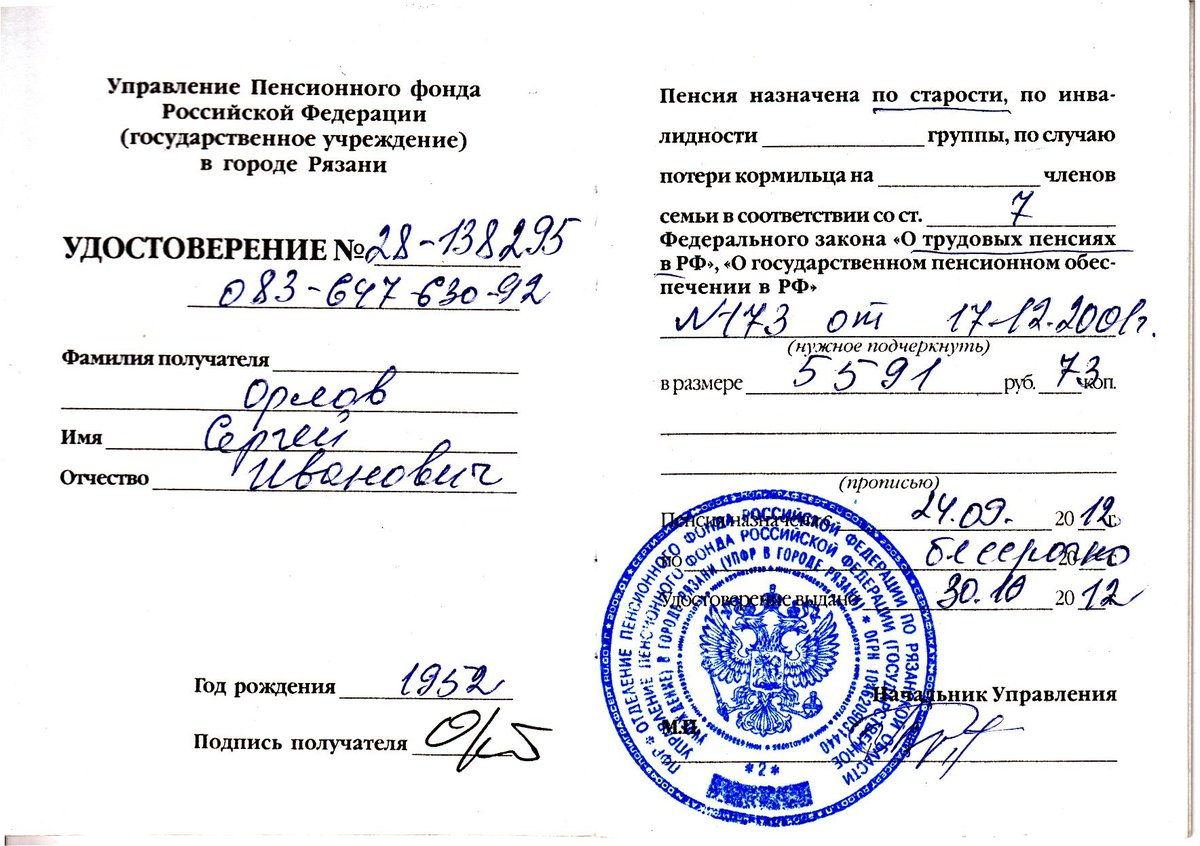 Управление Пенсионного фонда
Российской Федерации
(государственное учреждение)
в городе Рязани
УДОСТОВЕРЕНИЕ № 28-138295
083-647-630-92
Фамилия получателя
Орлов
Имя Сергей
Отчество Иванович
Год рождения 1952
Подпись получателя
Пенсия назначена по старости, по инва-
лидности группы, по случаю
потери кормильца на членов
семьи в соответствии со ст. 7
Федерального закона «О трудовых пенсиях
в РФ», «О государственном пенсионном обес-
печении в РФ»
№173 от 17-12-2001г.
(нужное подчеркнуть)
в размере 5591 руб. 73 коп.
(прописью)
Пенсия назначена с 24.09. 2012 г.
по бессрочно 20 г.
Удостоверение выдано 30.10 2012
Начальник Управления
М.П.
ОТДЕЛЕНИЕ ПЕНСИОННОГО ФОНДА РОССИЙСКОЙ ФЕДЕРАЦИИ ПО РЯЗАНСКОЙ ОБЛАСТИ
УПРАВЛЕНИЕ ПЕНСИОННОГО ФОНДА РОССИЙСКОЙ ФЕДЕРАЦИИ (ГОСУДАРСТВЕННОЕ
УЧРЕЖДЕНИЕ) В ГОРОДЕ РЯЗАНИ (УПФР В ГОРОДЕ РЯЗАНИ) * ОГРН
* 2 *